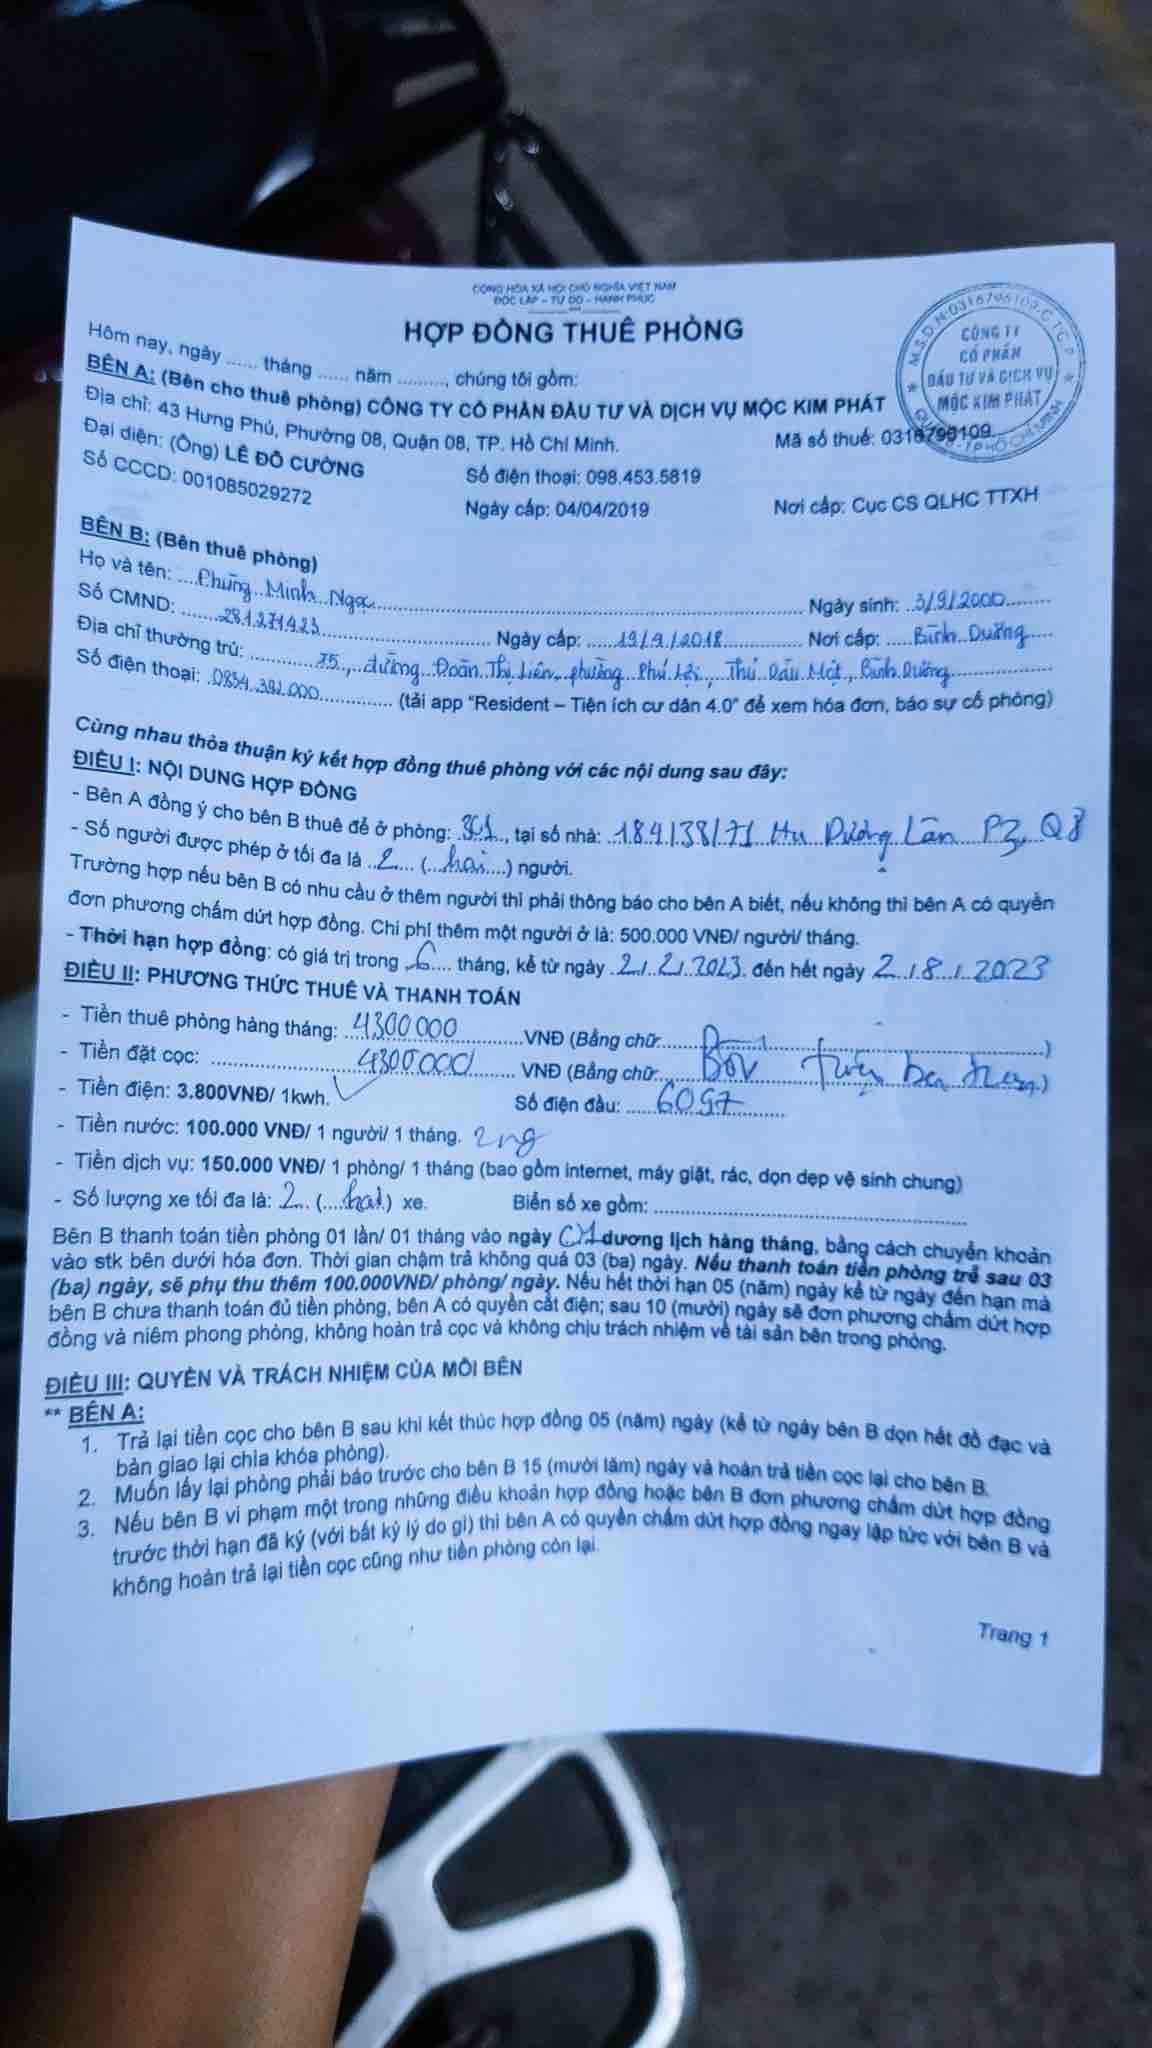 CỘNG HÒA XÃ HỘI CHỦ NGHĨA VIỆT NAM
ĐỘC LẬP – TỰ DO – HẠNH PHÚC
HỢP ĐỒNG THUÊ PHÒNG
M.S.D.N:0316796109.C.T.C.P
CÔNG TY
CỔ PHẦN
ĐẦU TƯ VÀ DỊCH VỤ
MỘC KIM PHÁT
TP HỒ CHÍ MINH
Hôm nay, ngày ...... tháng ...... năm ........., chúng tôi gồm:
BÊN A: (Bên cho thuê phòng) CÔNG TY CỔ PHẦN ĐẦU TƯ VÀ DỊCH VỤ MỘC KIM PHÁT
Địa chỉ: 43 Hưng Phú, Phường 08, Quận 08, TP. Hồ Chí Minh. Mã số thuế: 0316796109.
Đại diện: (Ông) LÊ ĐÔ CƯỜNG Số điện thoại: 098.453.5819
Số CCCD: 001085029272 Ngày cấp: 04/04/2019 Nơi cấp: Cục CS QLHC TTXH
BÊN B: (Bên thuê phòng)
Họ và tên: Phùng Minh Ngọc Ngày sinh: 3/9/2000
Số CMND: 281271423 Ngày cấp: 19/9/2018 Nơi cấp: Bình Dương
Địa chỉ thường trú: 75, đường Đoàn Thị Liên, phường Phú Lợi, Thủ Dầu Một, Bình Dương
Số điện thoại: 0854.392.000 (tải app “Resident – Tiện ích cư dân 4.0” để xem hóa đơn, báo sự cố phòng)
Cùng nhau thỏa thuận ký kết hợp đồng thuê phòng với các nội dung sau đây:
ĐIỀU I: NỘI DUNG HỢP ĐỒNG
- Bên A đồng ý cho bên B thuê để ở phòng: , tại số nhà: 184/38/71 Dương Lân P3, Q8
- Số người được phép ở tối đa là 2 (hai) người.
Trường hợp nếu bên B có nhu cầu ở thêm người thì phải thông báo cho bên A biết, nếu không thì bên A có quyền
đơn phương chấm dứt hợp đồng. Chi phí thêm một người ở là: 500.000 VNĐ/ người/ tháng.
- Thời hạn hợp đồng: có giá trị trong 6 tháng, kể từ ngày 2/2/2023 đến hết ngày 2/8/2023
ĐIỀU II: PHƯƠNG THỨC THUÊ VÀ THANH TOÁN
- Tiền thuê phòng hàng tháng: 4300000 VNĐ (Bằng chữ )
- Tiền đặt cọc: 4300000 VNĐ (Bằng chữ Bốn triệu ba trăm)
- Tiền điện: 3.800VNĐ/ 1kwh. Số điện đầu: 6097
- Tiền nước: 100.000 VNĐ/ 1 người/ 1 tháng. 2ng
- Tiền dịch vụ: 150.000 VNĐ/ 1 phòng/ 1 tháng (bao gồm internet, máy giặt, rác, dọn dẹp vệ sinh chung)
- Số lượng xe tối đa là: 2 (hai) xe. Biển số xe gồm:
Bên B thanh toán tiền phòng 01 lần/ 01 tháng vào ngày 01 dương lịch hàng tháng, bằng cách chuyển khoản
vào stk bên dưới hóa đơn. Thời gian chậm trả không quá 03 (ba) ngày. Nếu thanh toán tiền phòng trễ sau 03
(ba) ngày, sẽ phụ thu thêm 100.000VNĐ/ phòng/ ngày. Nếu hết thời hạn 05 (năm) ngày kể từ ngày đến hạn mà
bên B chưa thanh toán đủ tiền phòng, bên A có quyền cắt điện; sau 10 (mười) ngày sẽ đơn phương chấm dứt hợp
đồng và niêm phong phòng, không hoàn trả cọc và không chịu trách nhiệm về tài sản bên trong phòng.
ĐIỀU III: QUYỀN VÀ TRÁCH NHIỆM CỦA MỖI BÊN
** BÊN A:
1. Trả lại tiền cọc cho bên B sau khi kết thúc hợp đồng 05 (năm) ngày (kể từ ngày bên B dọn hết đồ đạc và
bàn giao lại chìa khóa phòng).
2. Muốn lấy lại phòng phải báo trước cho bên B 15 (mười lăm) ngày và hoàn trả tiền cọc lại cho bên B.
3. Nếu bên B vi phạm một trong những điều khoản hợp đồng hoặc bên B đơn phương chấm dứt hợp đồng
trước thời hạn đã ký (với bất kỳ lý do gì) thì bên A có quyền chấm dứt hợp đồng ngay lập tức với bên B và
không hoàn trả lại tiền cọc cũng như tiền phòng còn lại.
Trang 1